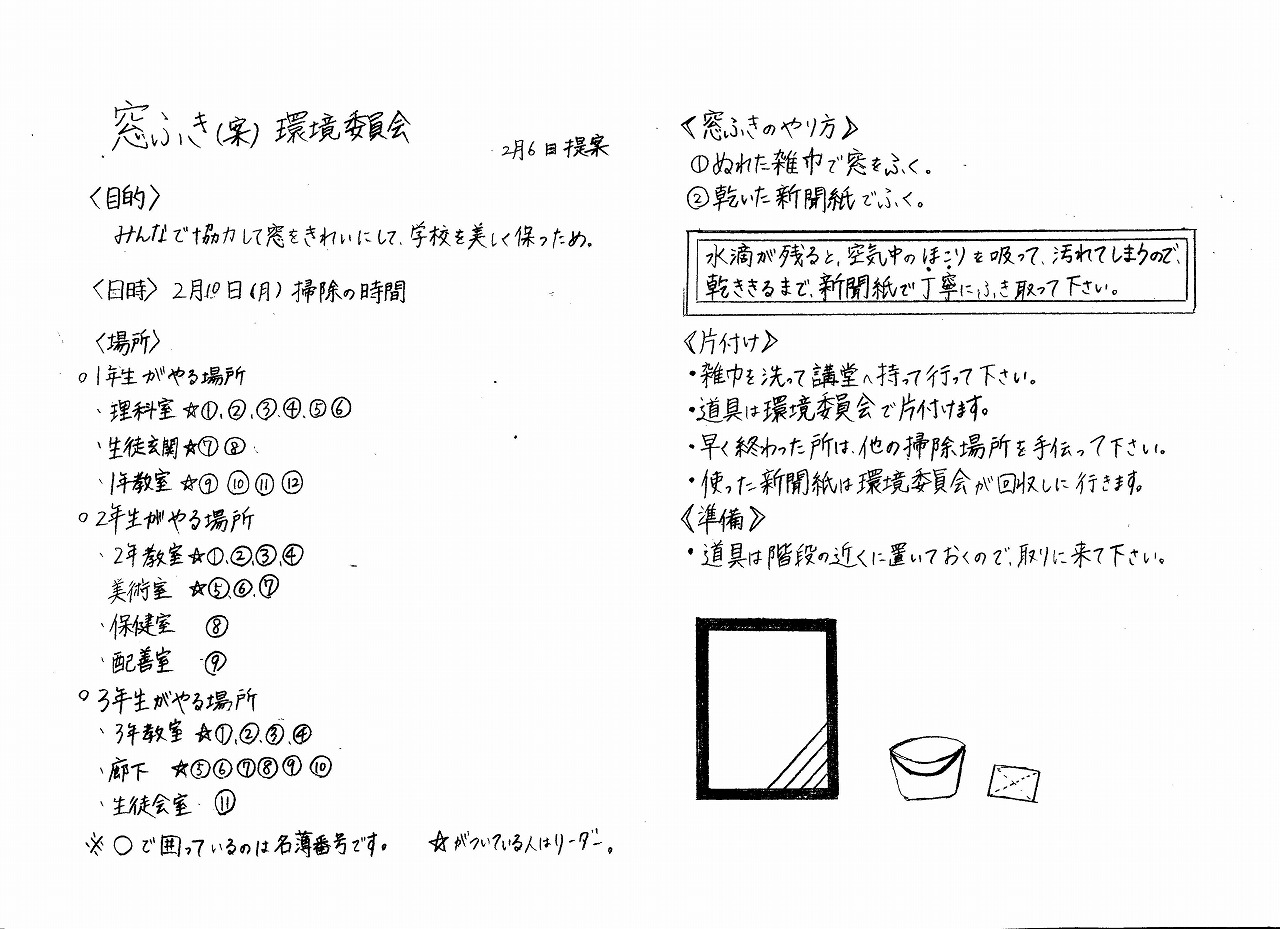 窓ふき(案) 環境委員会
2月6日提案
〈目的〉
みんなで協力して窓をきれいにして、学校を美しく保つため。
〈日時〉2月10日(月)掃除の時間
〈場所〉
○1年生がやる場所
・理科室 ☆①、②、③④、⑤⑥
・生徒玄関☆⑦⑧
・1年教室 ☆⑨⑩⑪⑫
○2年生がやる場所
・2年教室☆①、②③④
美術室 ☆⑤、⑥、⑦
・保健室 ⑧
・配善室 ⑨
○3年生がやる場所
・3年教室 ☆①、②、③、④
・廊下 ☆⑤⑥⑦⑧⑨⑩
・生徒会室 ⑪
※○で囲っているのは名薄番号です。 ☆がついている人はリーダー。
《窓ふきのやり方》
①ぬれた雑巾で窓をふく。
②乾いた新聞紙でふく。
水滴が残ると、空気中のほこりを吸って、汚れてしまうので、
乾ききるまで、新聞紙で丁寧にふき取って下さい。
《片付け》
・雑巾を洗って講堂へ持って行って下さい。
・道具は環境委員会で片付けます。
・早く終わった所は、他の掃除場所を手伝って下さい。
・使った新聞紙は環境委員会が回収しに行きます。
《準備》
・道具は階段の近くに置いておくので、取りに来て下さい。